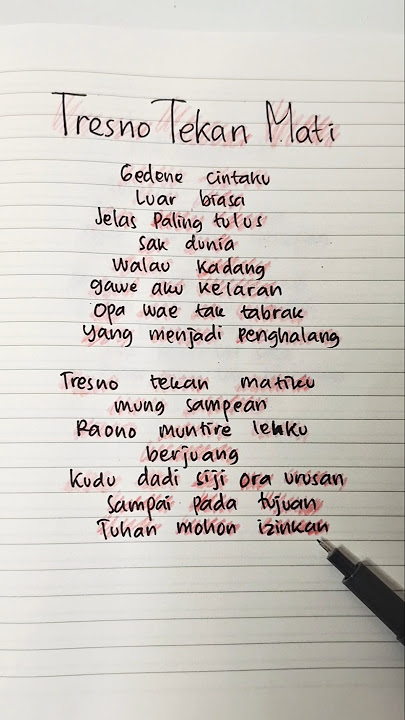 Tresno Tekan Mati
Gedene cintaku
Luar biasa
Jelas Paling tulus
sak dunia
walau kadang
gawe aku kelaran
Opa wae tak tabrak
yang menjadi penghalang
Tresno tekan matiku
mung sampean
Raono muntire lehku
berjuang
Kudu dadi siji ora urusan
Sampai pada tujuan
Tuhan mohon izinkan